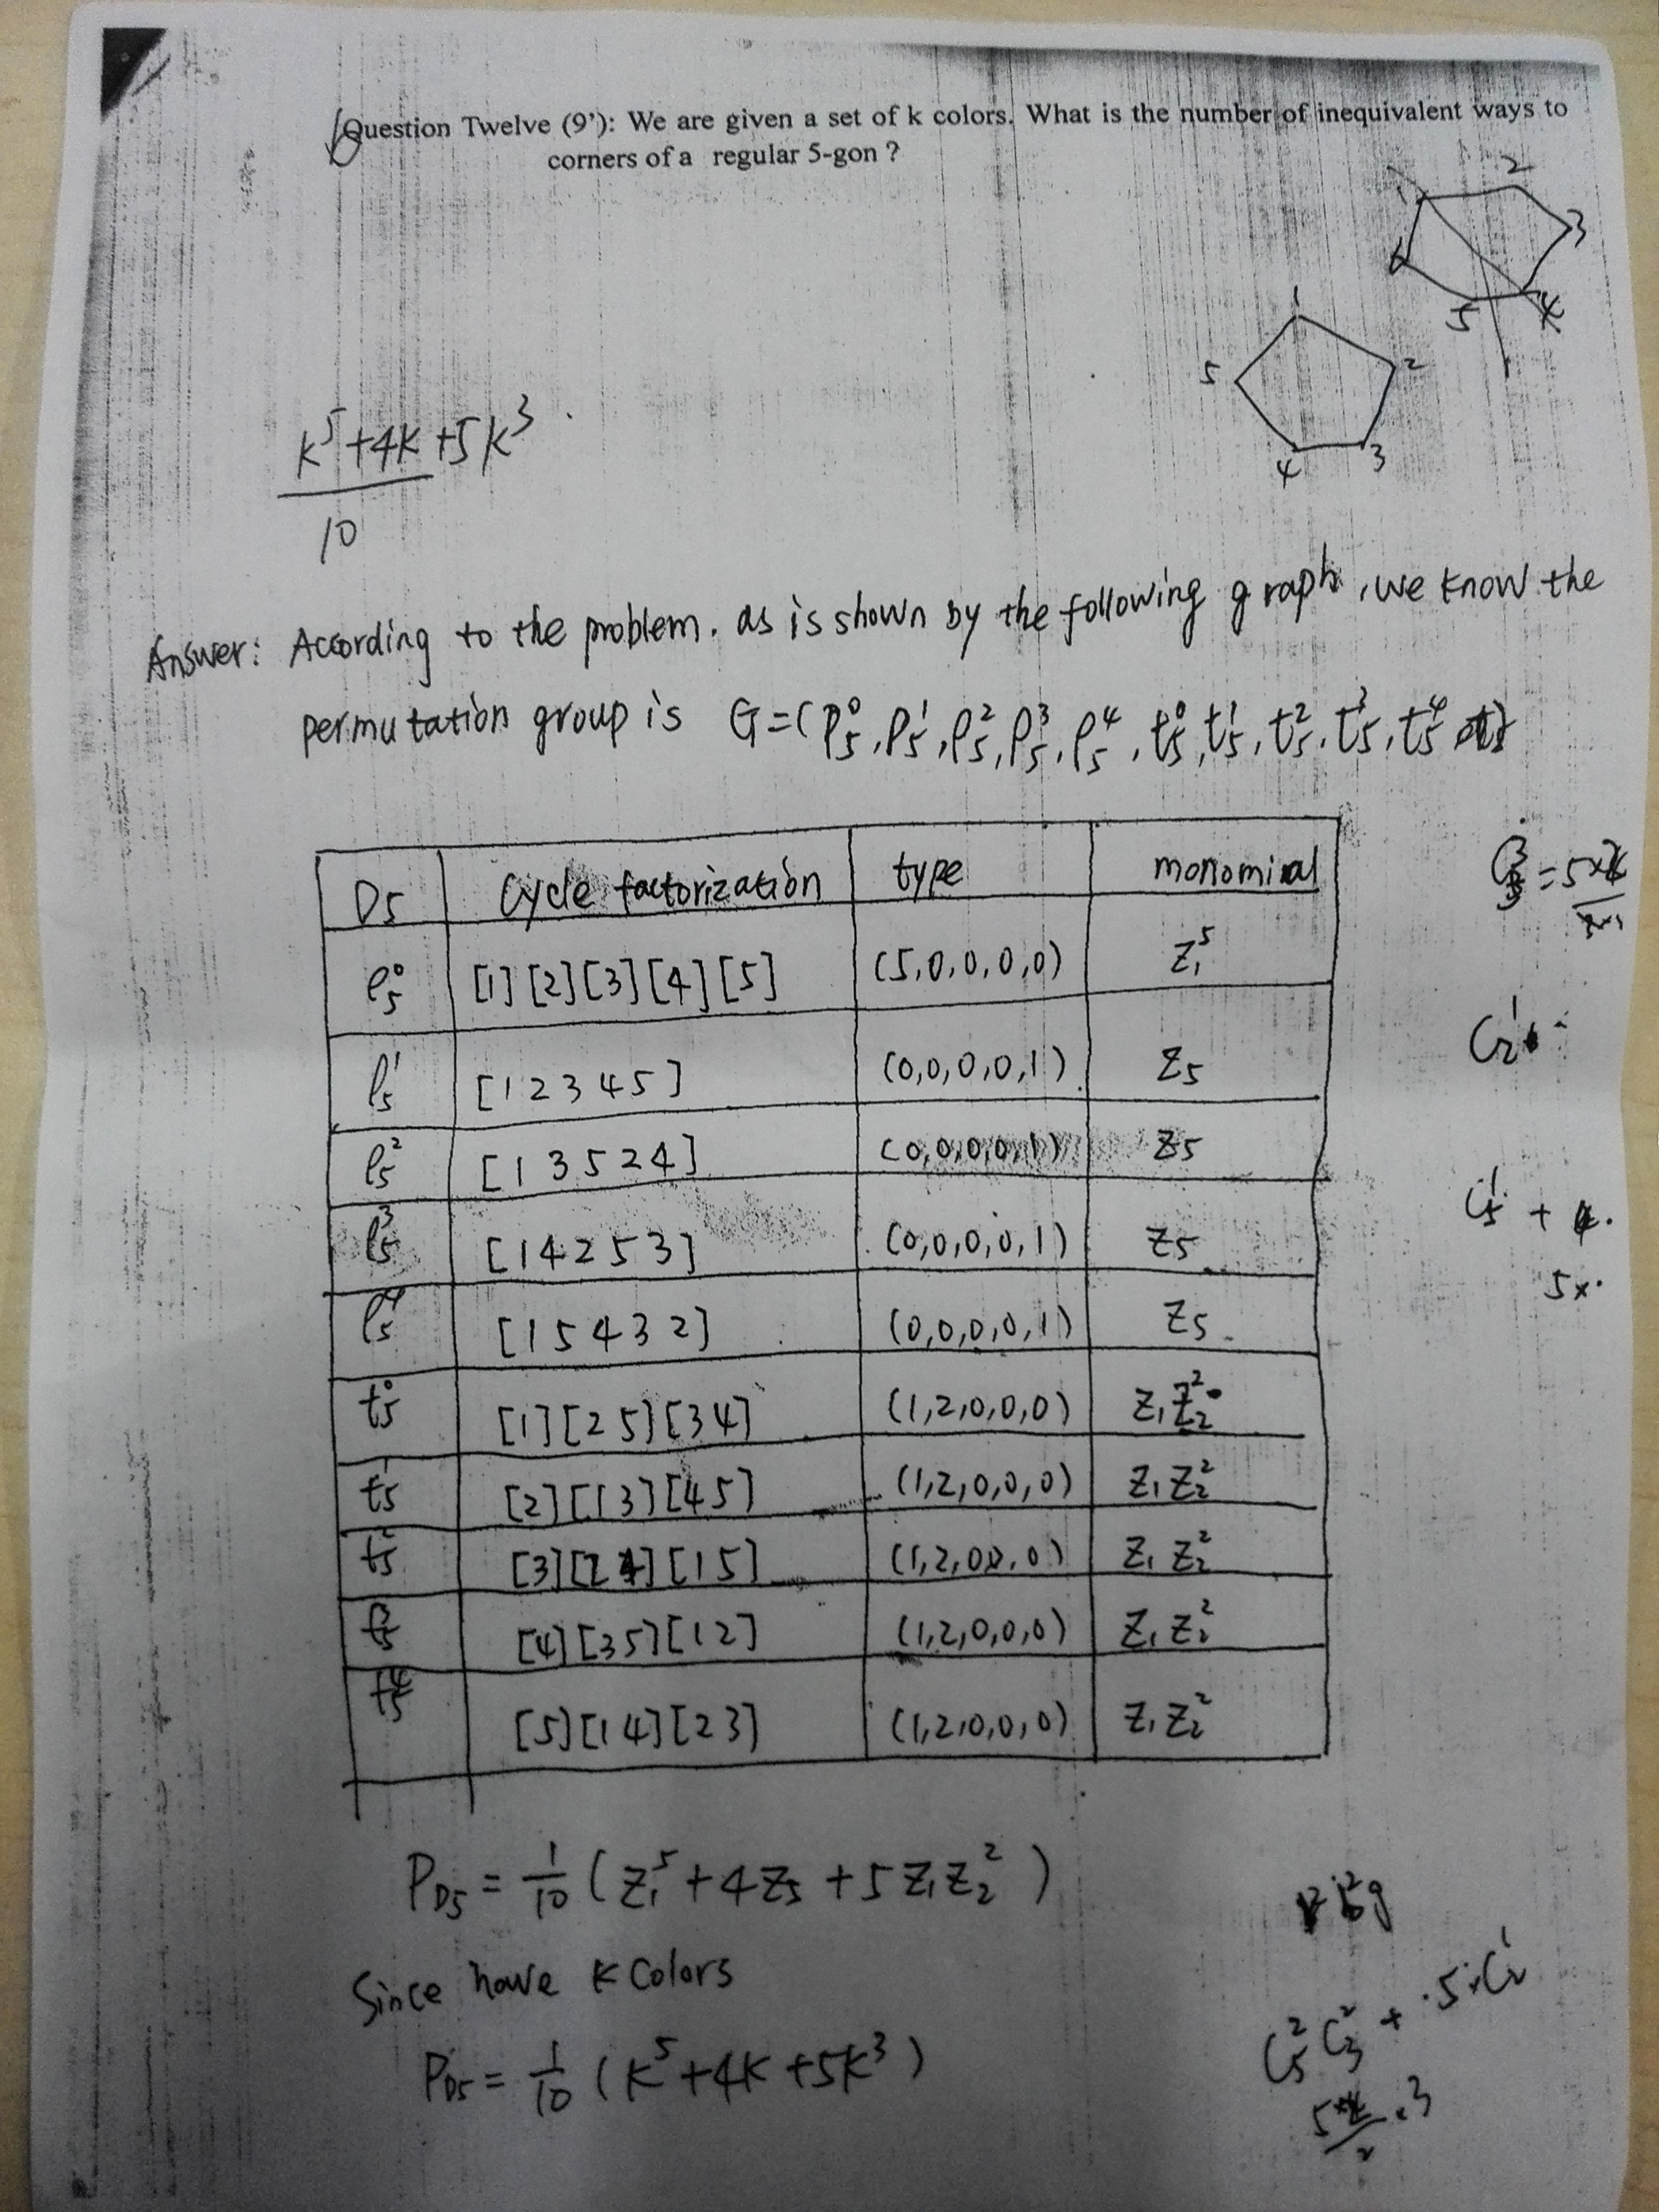 Question Twelve (9'): We are given a set of k colors. What is the number of inequivalent ways to
corners of a regular 5-gon ?
1 2 3 4 5 6
1 2 3 4 5
k⁵+4k+5k³
10
Answer: According to the problem. as is shown by the following graph, we know the
permutation group is G=(ρ₅⁰, ρ₅¹, ρ₅², ρ₅³, ρ₅⁴, t₅⁰, t₅¹, t₅², t₅³, t₅⁴
D5 Cycle factorization type monomial
ρ₅⁰ [1][2][3][4][5] (5,0,0,0,0) Z₁⁵
ρ₅¹ [1 2 3 4 5] (0,0,0,0,1) Z₅
ρ₅² [1 3 5 2 4] (0,0,0,0,1) Z₅
ρ₅³ [1 4 2 5 3] (0,0,0,0,1) Z₅
ρ₅⁴ [1 5 4 3 2] (0,0,0,0,1) Z₅
t₅⁰ [1][2 5][3 4] (1,2,0,0,0) Z₁Z₂²
t₅¹ [2][1 3][4 5] (1,2,0,0,0) Z₁Z₂²
t₅² [3][2 4][1 5] (1,2,0,0,0) Z₁Z₂²
t₅³ [4][3 5][1 2] (1,2,0,0,0) Z₁Z₂²
t₅⁴ [5][1 4][2 3] (1,2,0,0,0) Z₁Z₂²
C₂¹
C₅¹ +
5×
P_D5 = 1/10 (Z₁⁵ + 4Z₅ + 5Z₁Z₂²)
Since have k colors
P_D5 = 1/10 (k⁵+4k+5k³)
C₅² C₃² + ·5·C₂¹